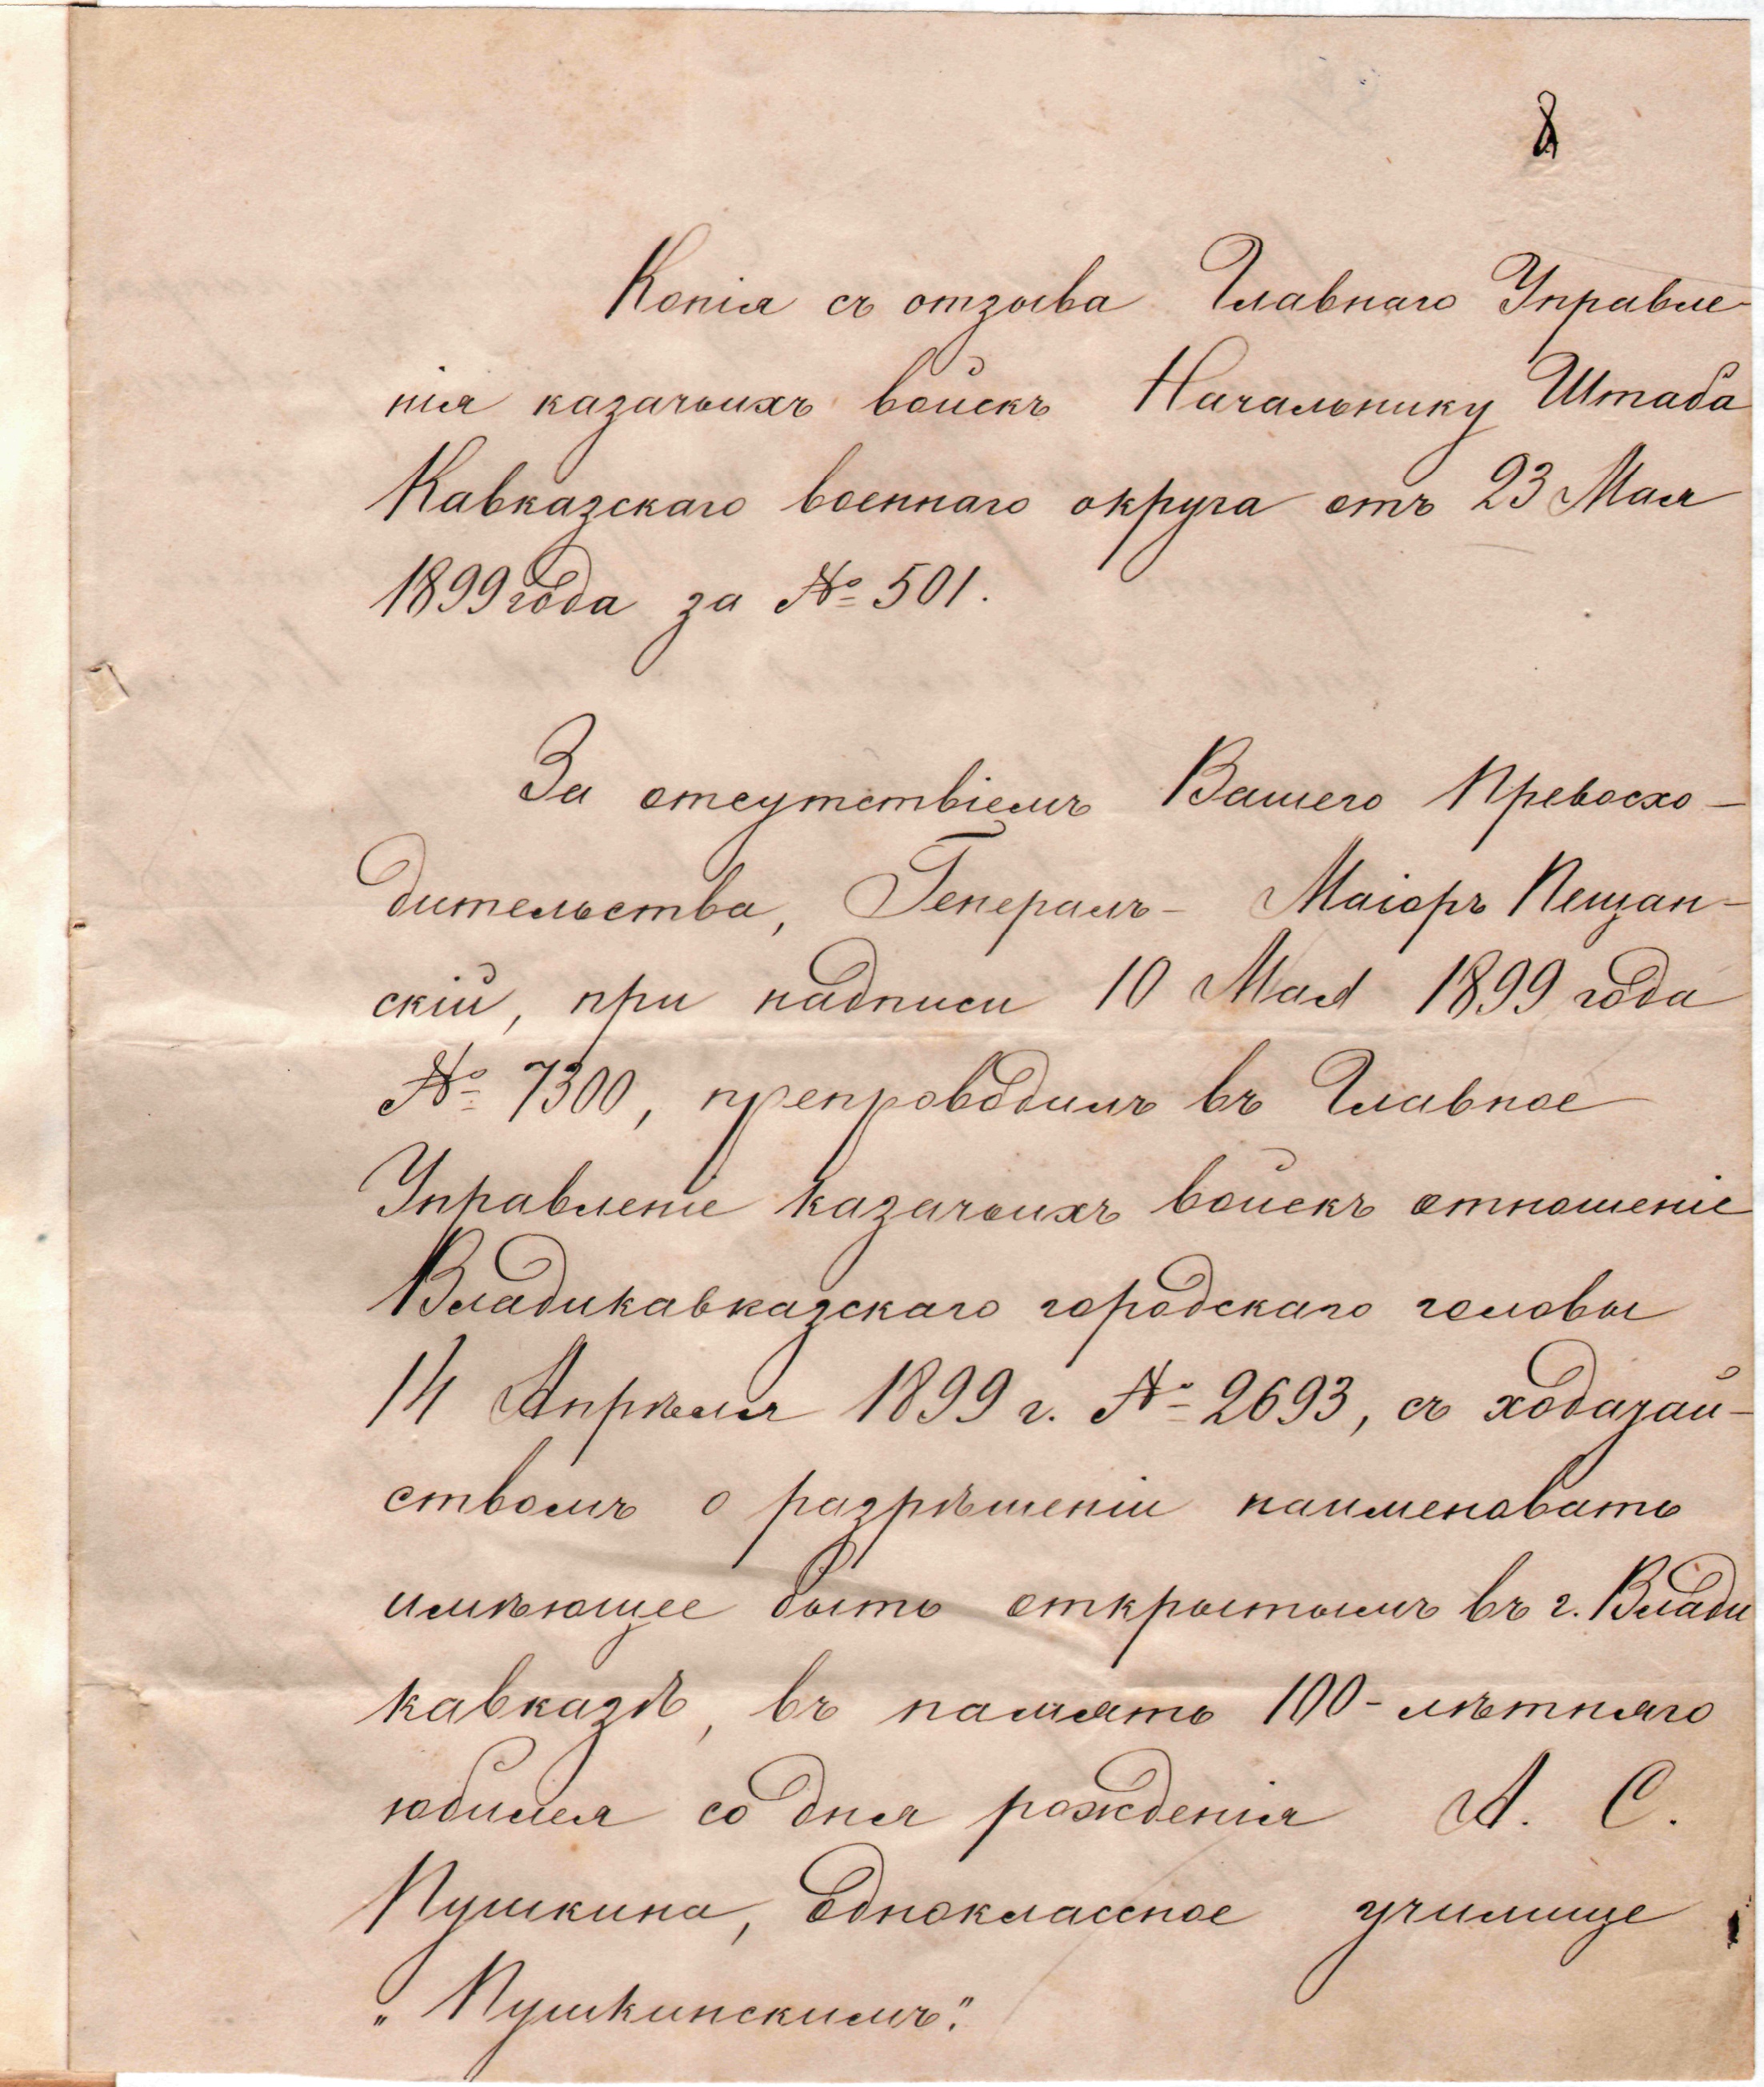 8
Копія съ отзыва Главнаго Управле-
нія казачьихъ войскъ Начальнику Штаба
Кавказскаго военнаго округа отъ 23 Мая
1899 года за № 501.
За отсутствіемъ Вашего Превосхо-
дительства, Генералъ- Маіоръ Пещан-
скій, при надписи 10 Мая 1899 года
№ 7300, препроводилъ въ Главное
Управленіе казачьихъ войскъ отношеніе
Владикавказскаго городскаго головы
14 Апрѣля 1899 г. № 2693, съ ходатай-
ствомъ о разрѣшеніи наименовать
имѣющее быть открытымъ въ г. Влади
кавказѣ, въ память 100-лѣтняго
юбилея со дня рожденія А. С.
Пушкина, одноклассное училище
„Пушкинскимъ".